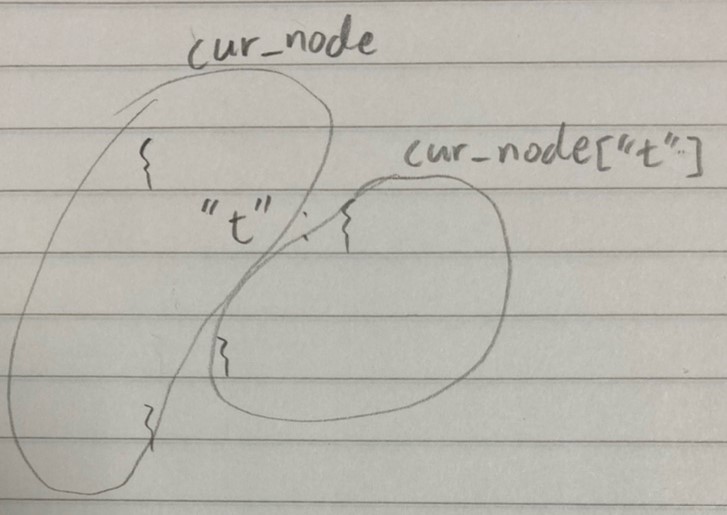 cur_node
cur_node["t"]
{
"t" : {
}
}